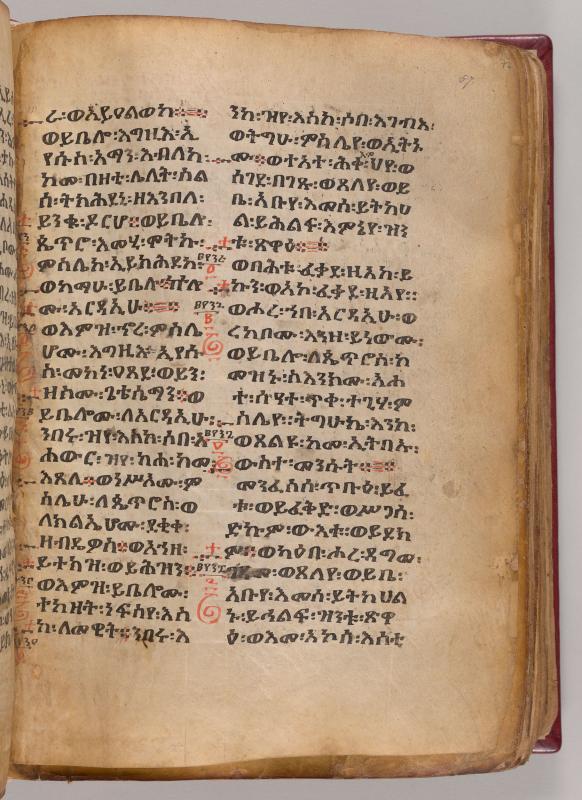 ራ፡ወኢይዐልወከ።
ወይቤሎ፡እግዚእ፡ኢ
የሱስ፡አማን፡እብለከ፡
ከመ፡በዛቲ፡ሌሊት፡ስል
ሰ፡ትክሕደኒ፡ዘእንበለ፡
ይንቁ፡ዶርሆ።ወይቤሎ፡
ጴጥሮ፡እመሂ፡ሞትኩ፡
ምስሌከ፡ኢይክሕደከ፡
ወከማሁ፡ይቤሉ፡ኵሎ
ሙ፡አርዳኢሁ።
ወእምዝ፡ሖረ፡ምስሌ
ሆሙ፡እግዚእ፡ኢየሱ
ስ፡መካነ፡ዐጸደ፡ወይን፡
ዘስሙ፡ጌቴሴማን።ወ
ይቤሎሙ፡ለአርዳኢሁ፡
ንበሩ፡ዝየ፡እስከ፡ሶበ፡አ
ሐውር፡ዝየ፡ከሐ፡ከመ፡
እጸሊ።ወነሥኦሙ፡ም
ስሌሁ፡ለጴጥሮስ፡ወ
ለክልኤሆሙ፡ደቂቀ፡
ዘብዴዎስ።ወአኀዘ፡
ይተክዝ፡ወይሕዝን።
ወእምዝ፡ይቤሎሙ፡
ተከዘት፡ነፍስየ፡እስ
ከ፡ለመዊት።ንበሩ፡እ
ንከ፡ዝየ፡እስከ፡ሶበ፡እገብእ፡
ወትግሁ፡ምስሌየ፡ወሊትኑ
ሙ።ወተአተ፡ሕቀ፡ህየ፡ወ
ሰገደ፡በገጹ፡ወጸለየ፡ወይ
ቤ፡አቡየ፡እመሰ፡ይትከሀ
ል፡ይሕልፍ፡እምኔየ፡ዝን
ቱ፡ጽዋዕ።
ወበሕቱ፡ፈቃደ፡ዚአከ፡ይ
ኩን፡ወአኮ፡ፈቃደ፡ዚአየ።
ወሖረ፡ኀበ፡አርዳኢሁ፡ወ
ረከቦሙ፡እንዘ፡ይነውሙ፡
ወይቤሎ፡ለጴጥሮስ፡ከ
መዝኑ፡ስእንክሙ፡አሐ
ተ፡ሰዓተ፡ጥቀ፡ተጊሃ፡ም
ስሌየ።ትግሁኬ፡እንከ፡
ወጸልዩ፡ከመ፡ኢትባኡ፡
ውስተ፡መንሱት።
መንፈስሰ፡ጥቡዕ፡ይፈ
ቱ፡ወይፈቅድ፡ወሥጋሰ፡
ድኩም፡ውእቱ፡ወይደክ
ም።ወካዕበ፡ሖረ፡ዳግመ፡
ወጸለየ፡ወይቤ፡
አቡየ፡እመሰ፡ይትከሀል
ኑ፡ይኅልፍ፡ዝንቱ፡ጽዋ
ዕ፡ወእመ፡አኮሰ፡እሰቲ